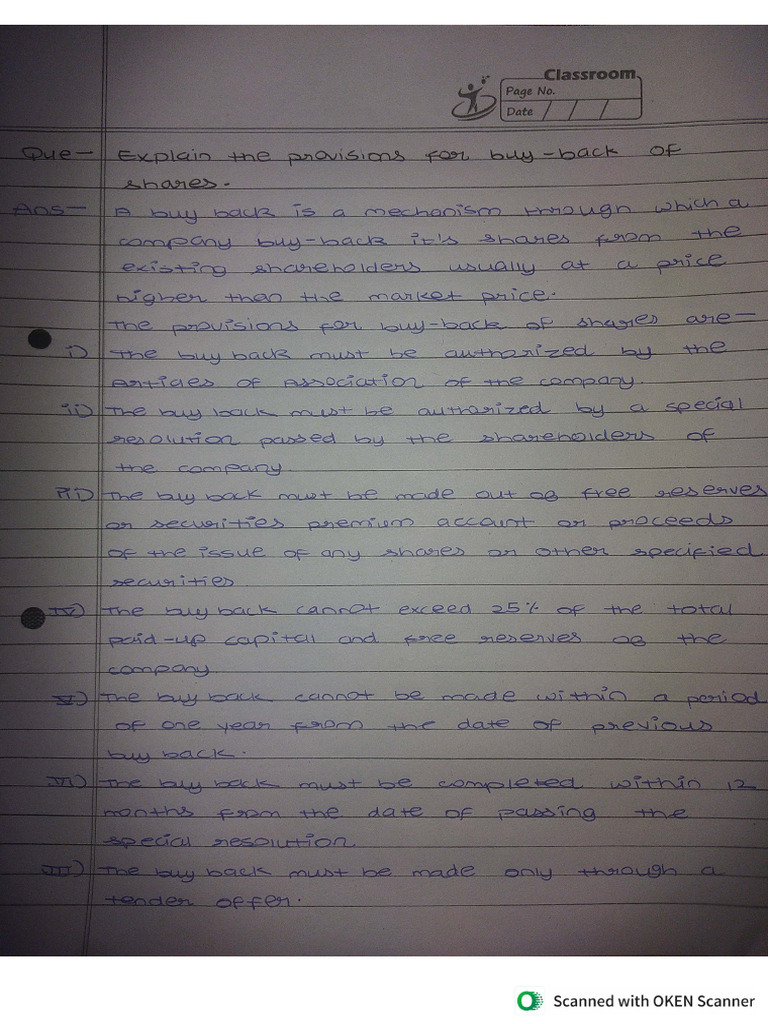 Classroom
Page No.
Date / / /
Que- Explain the provisions for buy-back of
shares.
Ans- A buy back is a mechanism through which a
company buy-back it's shares from the
existing shareholders usually at a price
higher than the market price.
The provisions for buy-back of shares are-
i) The buy back must be authorized by the
Articles of Association of the company.
ii) The buy back must be authorized by a special
resolution passed by the shareholders of
the company
iii) The buy back must be made out of free reserves
or securities premium account or proceeds
of the issue of any shares or other specified
securities
IV) The buy back cannot exceed 25% of the total
paid-up capital and free reserves of the
company
V) The buy back cannot be made within a period
of one year from the date of previous
buy back.
VI) The buy back must be completed within 12
months from the date of passing the
special resolution
VII) The buy back must be made only through a
tender offer.
Scanned with OKEN Scanner